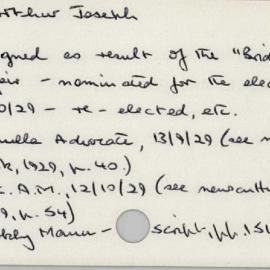 Arthur Joseph
igned as result of the "Brid
air - nominated for the elec
0/29 - re-elected, etc.
uella Advocate, 13/9/29 (see n
k, 1929, p. 40.)
. A.M., 12/10/29 (see newscutti
9, p. 54)
kly Mann- script, pp. 151